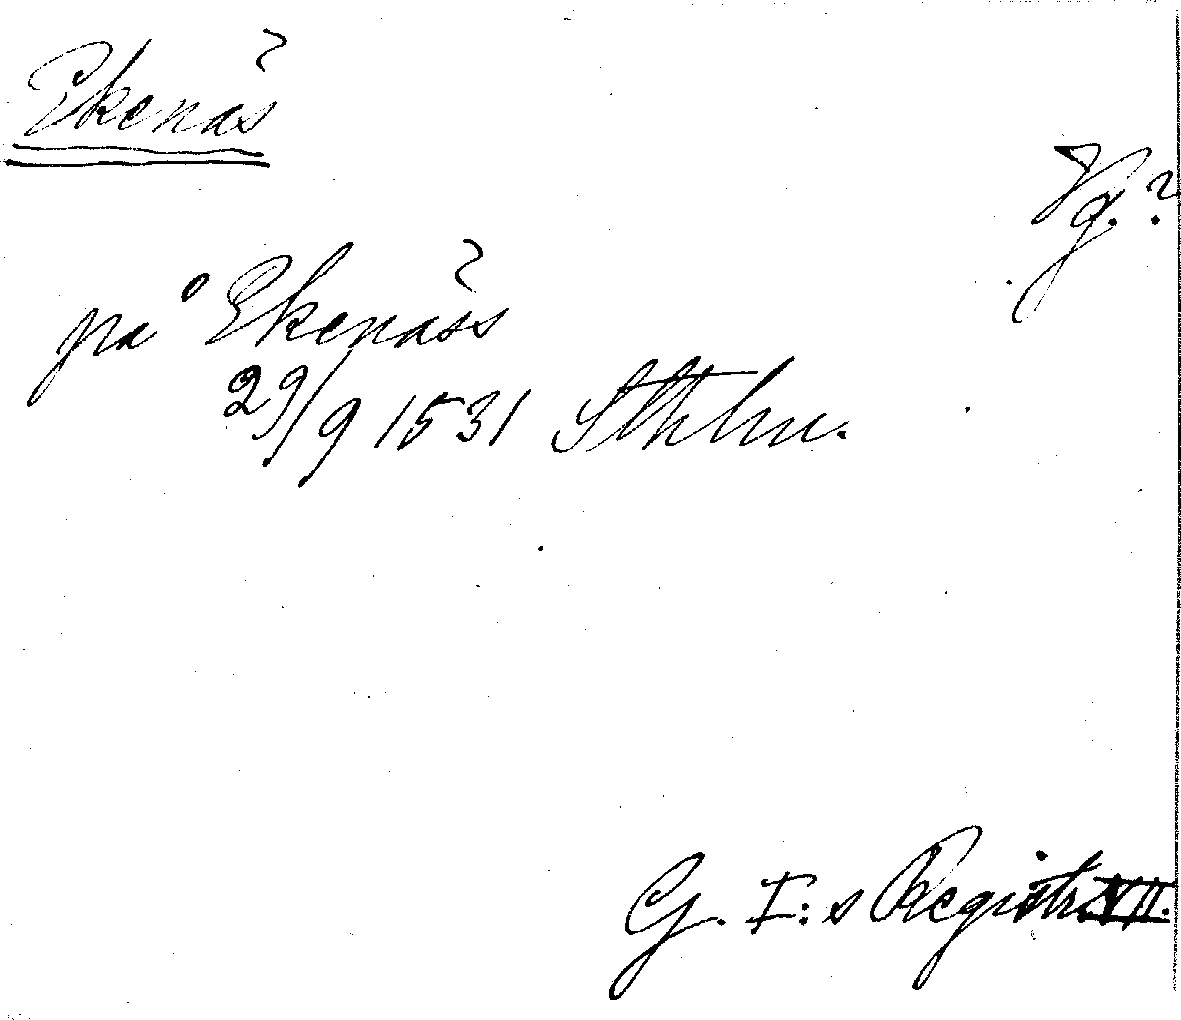 Ekenäs
Vg.?
på Ekenäss
29/9 1531 Sthlm.
G. I:s Registr. VII.